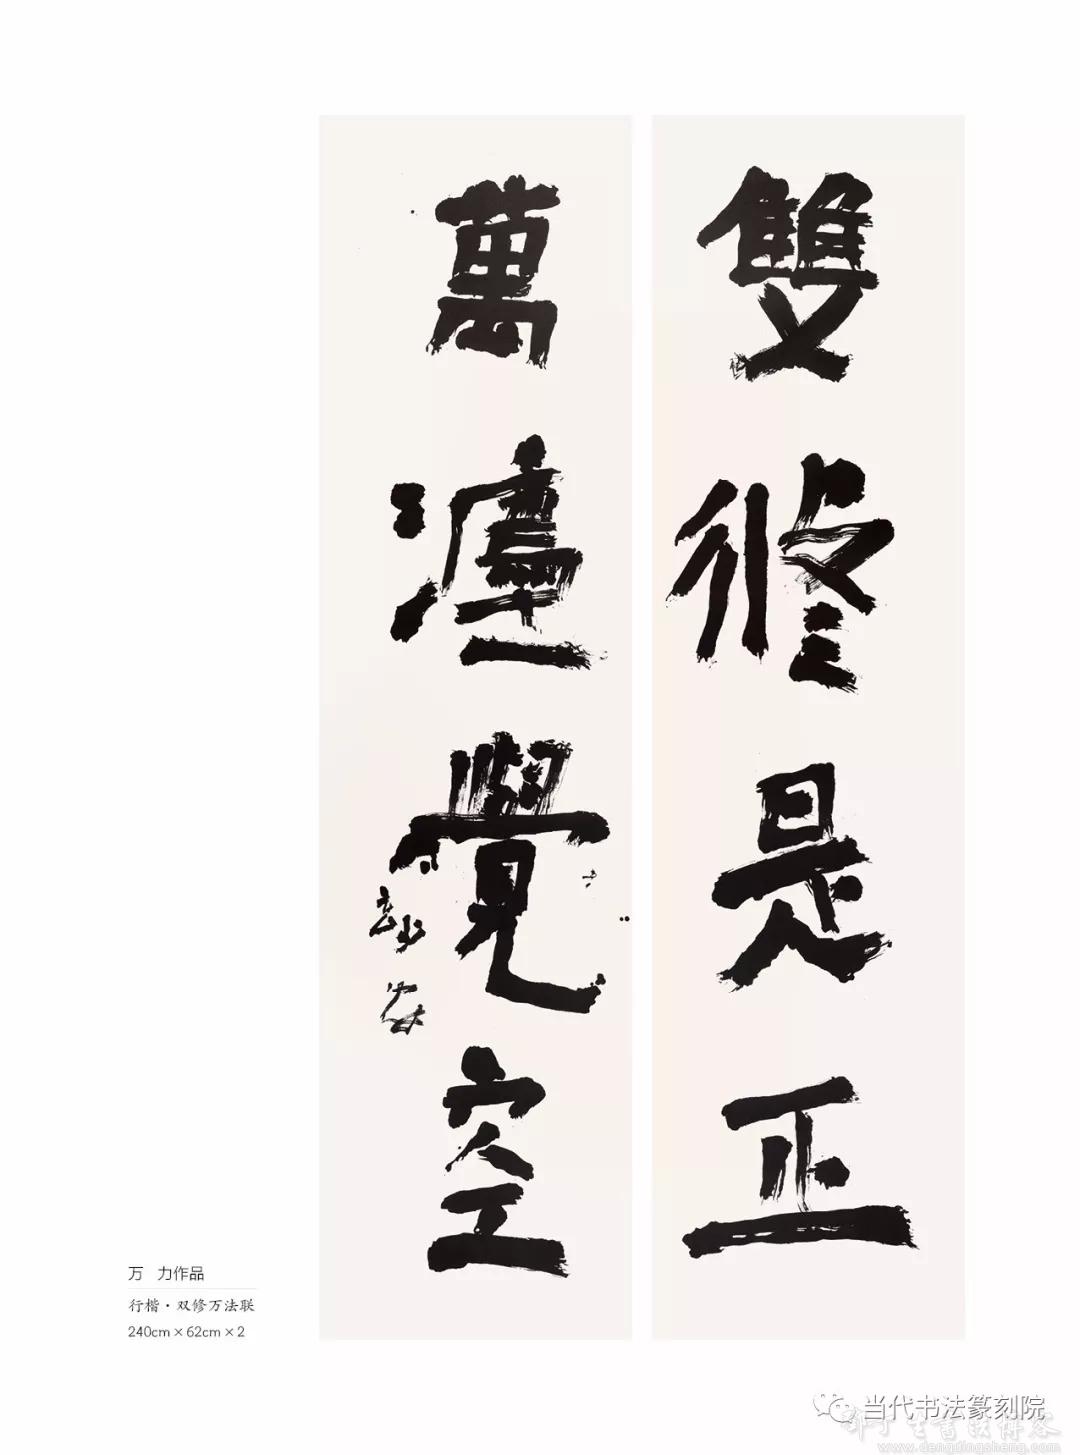 雙修是正
萬灋覺空
万 力作品
行楷·双修万法联
240cm×62cm×2
当代书法篆刻院
邓丁生书法博客
www.dengdingsheng.com